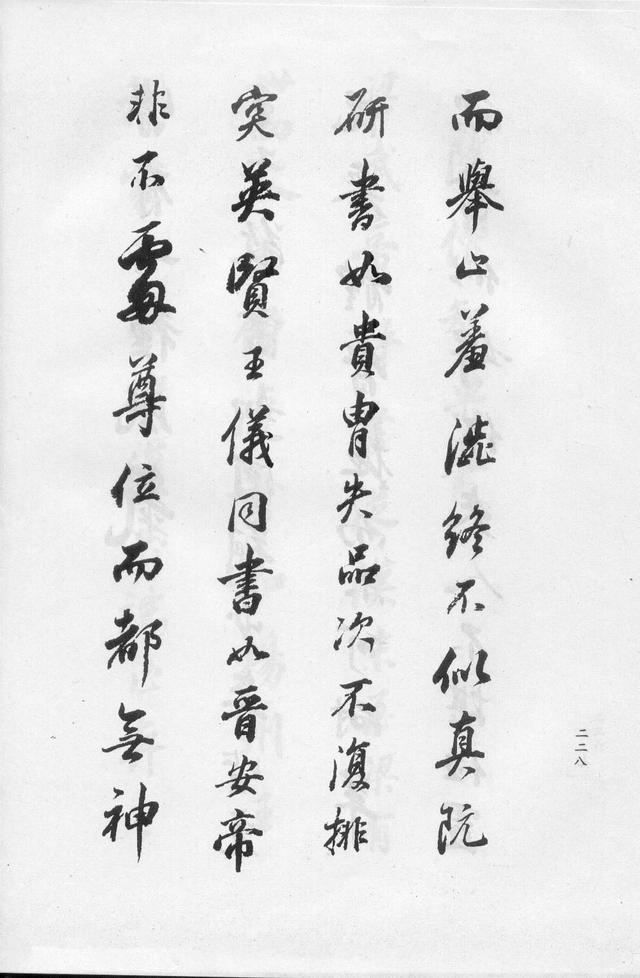 而舉止羞澁終不似真阮
研書如貴胄失品次不復排
突英賢王儀同書如晉安帝
非不處尊位而都無神
二二八